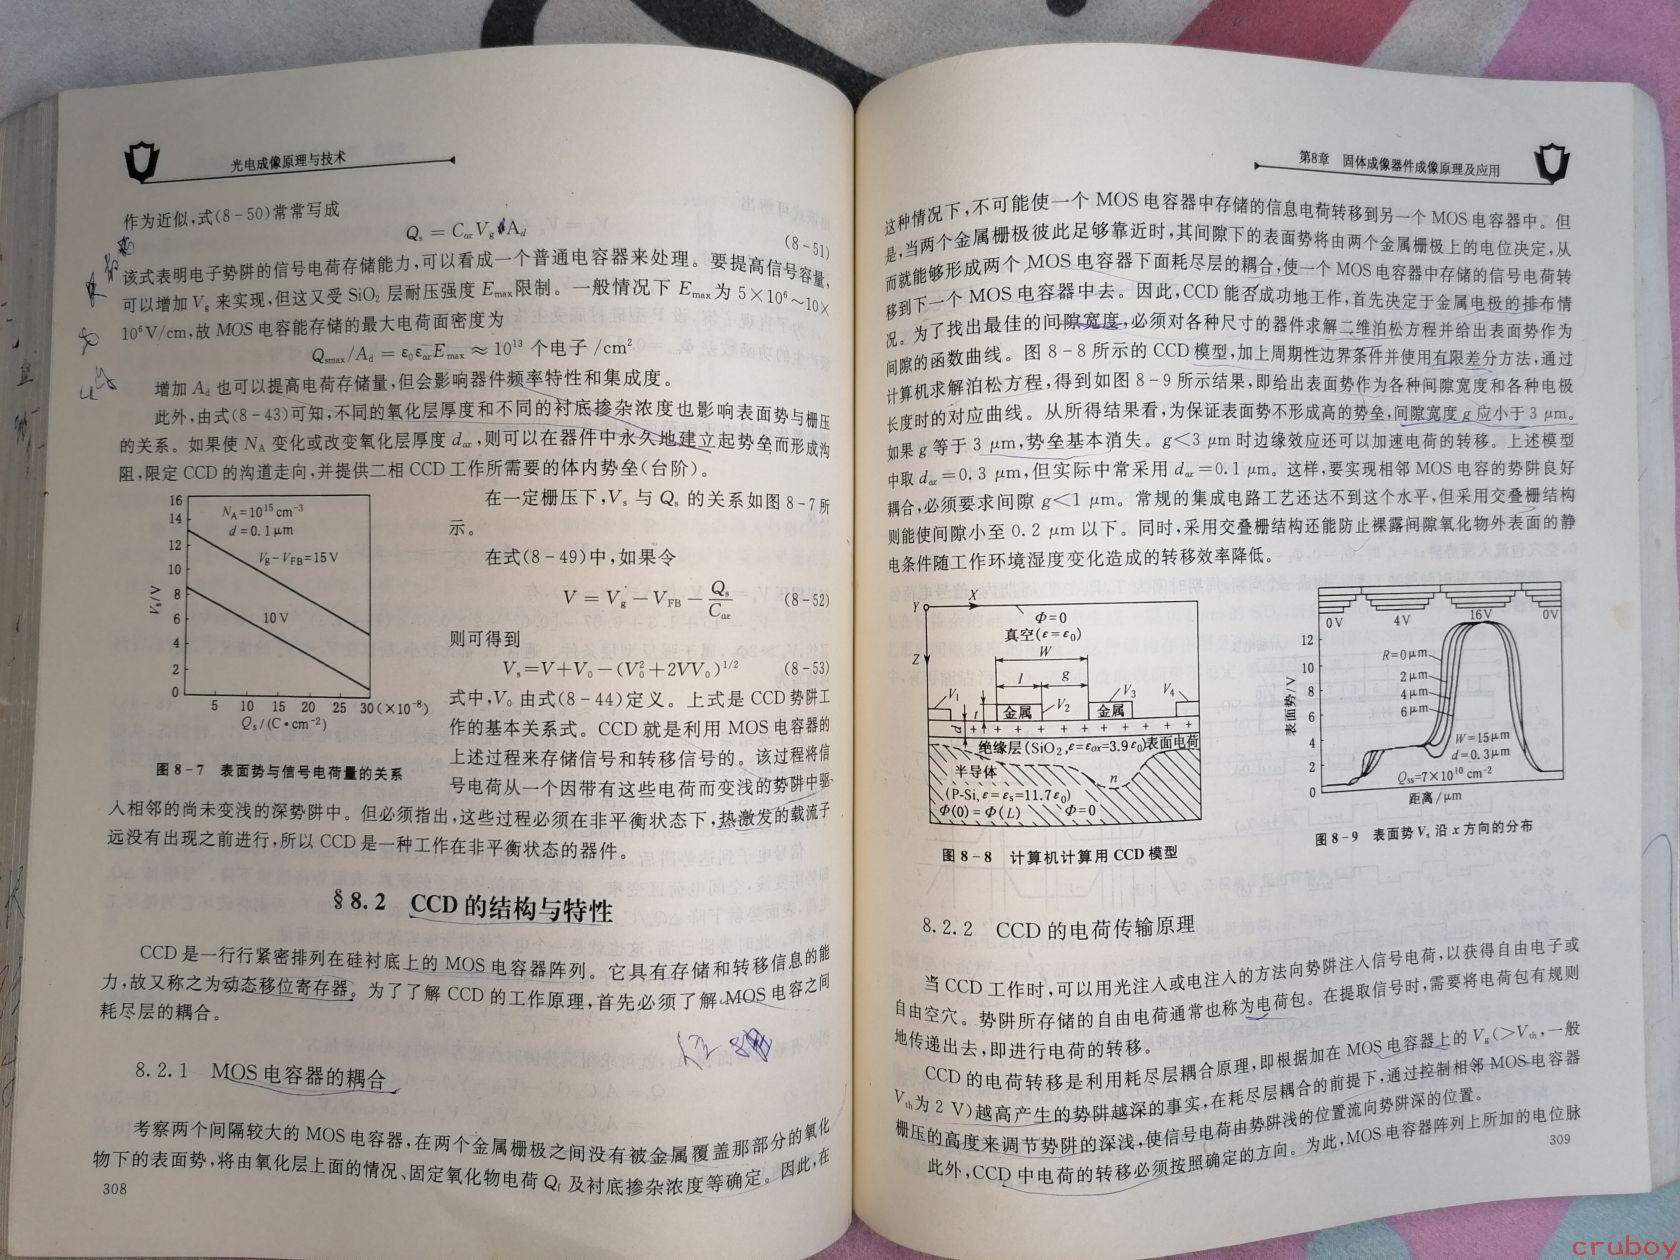 光电成像原理与技术
作为近似,式(8-50)常常写成
Qs = CoxVg Ad
(8-51)
该式表明电子势阱的信号电荷存储能力,可以看成一个普通电容器来处理。要提高信号容量,
可以增加 Vg 来实现,但这又受 SiO₂ 层耐压强度 Emax限制。一般情况下 Emax为 5×10⁶~10×
10⁶V/cm,故 MOS 电容能存储的最大电荷面密度为
Qsmax/Ad = ε₀εoxEmax ≈ 10¹³ 个电子/cm²
增加 Ad 也可以提高电荷存储量,但会影响器件频率特性和集成度。
此外,由式(8-43)可知,不同的氧化层厚度和不同的衬底掺杂浓度也影响表面势与栅压
的关系。如果使 NA 变化或改变氧化层厚度 dox,则可以在器件中永久地建立起势垒而形成沟
阻,限定 CCD 的沟道走向,并提供二相 CCD 工作所需要的体内势垒(台阶)。
16
14
12
10
8
6
4
2
0
Vs/V
NA=10¹⁵cm⁻³
d=0.1μm
Vg-VFB=15V
10V
5 10 15 20 25 30(×10⁻⁸)
Qs/(C·cm⁻²)
图 8-7 表面势与信号电荷量的关系
在一定栅压下,Vs 与 Qs 的关系如图 8-7 所
示。
在式(8-49)中,如果令
V = Vg - VFB - Qs/Cox (8-52)
则可得到
Vs=V+V₀-(V₀²+2VV₀)^1/2 (8-53)
式中,V₀ 由式(8-44)定义。上式是 CCD 势阱工
作的基本关系式。CCD 就是利用 MOS 电容器的
上述过程来存储信号和转移信号的。该过程将信
号电荷从一个因带有这些电荷而变浅的势阱中驱
入相邻的尚未变浅的深势阱中。但必须指出,这些过程必须在非平衡状态下,热激发的载流子
远没有出现之前进行,所以 CCD 是一种工作在非平衡状态的器件。
§8.2 CCD 的结构与特性
CCD 是一行行紧密排列在硅衬底上的 MOS 电容器阵列。它具有存储和转移信息的能
力,故又称之为动态移位寄存器。为了了解 CCD 的工作原理,首先必须了解 MOS 电容之间
耗尽层的耦合。
8.2.1 MOS 电容器的耦合
考察两个间隔较大的 MOS 电容器,在两个金属栅极之间没有被金属覆盖那部分的氧化
物下的表面势,将由氧化层上面的情况、固定氧化物电荷 Qf 及衬底掺杂浓度等确定。因此,在
308
第8章 固体成像器件成像原理及应用
这种情况下,不可能使一个 MOS 电容器中存储的信息电荷转移到另一个 MOS 电容器中。但
是,当两个金属栅极彼此足够靠近时,其间隙下的表面势将由两个金属栅极上的电位决定,从
而就能够形成两个 MOS 电容器下面耗尽层的耦合,使一个 MOS 电容器中存储的信号电荷转
移到下一个 MOS 电容器中去。因此,CCD 能否成功地工作,首先决定于金属电极的排布情
况。为了找出最佳的间隙宽度,必须对各种尺寸的器件求解二维泊松方程并给出表面势作为
间隙的函数曲线。图 8-8 所示的 CCD 模型,加上周期性边界条件并使用有限差分方法,通过
计算机求解泊松方程,得到如图 8-9 所示结果,即给出表面势作为各种间隙宽度和各种电极
长度时的对应曲线。从所得结果看,为保证表面势不形成高的势垒,间隙宽度 g 应小于 3 μm。
如果 g 等于 3 μm,势垒基本消失。g<3 μm 时边缘效应还可以加速电荷的转移。上述模型
中取 dox=0.3 μm,但实际中常采用 dox=0.1 μm。这样,要实现相邻 MOS 电容的势阱良好
耦合,必须要求间隙 g<1 μm。常规的集成电路工艺还达不到这个水平,但采用交叠栅结构
则能使间隙小至 0.2 μm 以下。同时,采用交叠栅结构还能防止裸露间隙氧化物外表面的静
电条件随工作环境湿度变化造成的转移效率降低。
Y X
Z
Φ=0
真空(ε=ε₀)
W
l g
V₁ V₂ V₃ V₄
t
d
金属 金属
+ + + + + +
绝缘层(SiO₂,ε=εox=3.9ε₀)表面电荷
半导体
n
(P-Si,ε=εs=11.7ε₀)
Φ(0)=Φ(L) Φ=0
图 8-8 计算机计算用 CCD 模型
0V 4V 16V 0V
12
10
8
6
4
2
0
表面势/V
R=0μm
2μm
4μm
6μm
W=15μm
d=0.3μm
Qss=7×10¹⁰cm⁻²
距离/μm
图 8-9 表面势 Vs 沿 x 方向的分布
8.2.2 CCD 的电荷传输原理
当 CCD 工作时,可以用光注入或电注入的方法向势阱注入信号电荷,以获得自由电子或
自由空穴。势阱所存储的自由电荷通常也称为电荷包。在提取信号时,需要将电荷包有规则
地传递出去,即进行电荷的转移。
CCD 的电荷转移是利用耗尽层耦合原理,即根据加在 MOS 电容器上的 Vg(>Vth,一般
Vth为 2 V)越高产生的势阱越深的事实,在耗尽层耦合的前提下,通过控制相邻 MOS 电容器
栅压的高度来调节势阱的深浅,使信号电荷由势阱浅的位置流向势阱深的位置。
此外,CCD 中电荷的转移必须按照确定的方向。为此,MOS 电容器阵列上所加的电位脉
309
cruboy